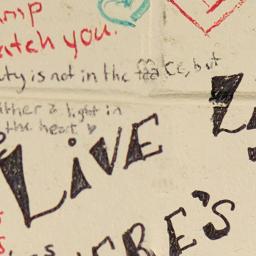 atch you.
ty is not in the face, but
ther a light in
the heart
LiVE
ERE'S